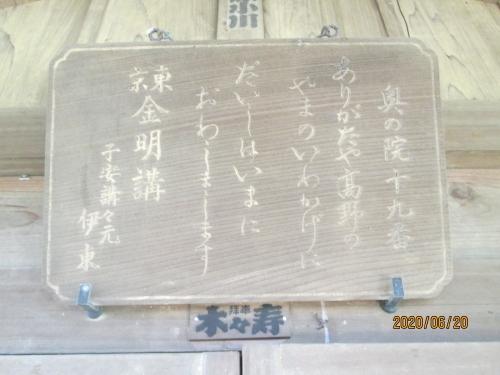 奥の院十九番
ありがたや高野の
やまのいわかげに
だいしはいまに
おわしまします
東京金明講
子安講々元
伊東
奉拝
寿々木
2020/06/20